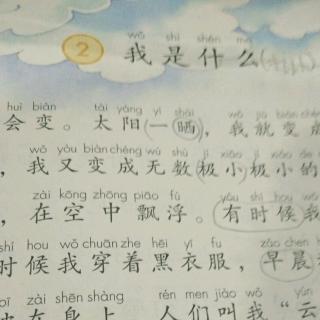 2 我是什么
wǒ shì shén me
huì biàn tài yáng yí shài wǒ jiù biàn chéng
会变。太阳一晒，我就变成
wǒ yòu biàn chéng wú shù jí xiǎo jí xiǎo de
，我又变成无数极小极小的
zài kōng zhōng piāo fú yǒu shí hou wǒ
，在空中飘浮。有时候我
shí hou wǒ chuān zhe hēi yī fu zǎo chen
时候我穿着黑衣服，早晨
zài shēn shàng rén men jiào wǒ yún
在身上，人们叫我“云